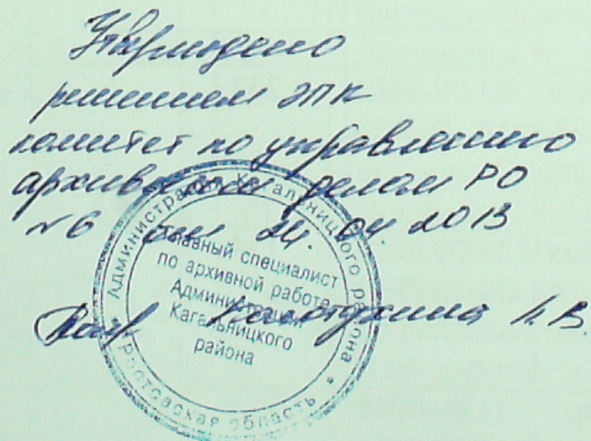 Утверждено
решением ЭПК
комитет по управлению
архивным делом РО
№6 от 24.04 2013
Администрация Кагальницкого района
Ростовская область
Главный специалист
по архивной работе
Администрации
Кагальницкого
района